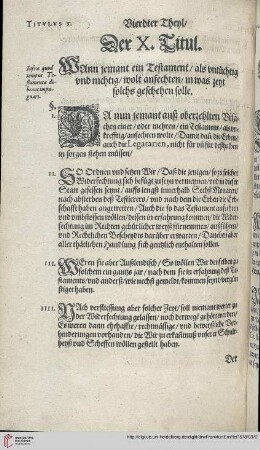 TITVLVS X.
Vierdter Theyl/
Der X. Titul.
WAnn jemant ein Testament/ als vntüchtig
vnd nichtig/ wolt anfechten/ in was zeyt
solchs geschehen solle.
§.
I.
DA nun jemant auß oberzehlten Vrsa-
chen einer/ oder mehren/ ein Testament/ als vn-
kreftig/ anfechten wolte/ Damit dañ die Erben/
auch die Legatarien, nicht für vnd für deßhalben
in sorgen stehen müssen/
II.
SO Ordnen vnd setzen Wir/ Daß die jenigen/ so zu solcher
Widerfechtung sich befugt zu seyn vermeynen/
geseissen seynt/ auffs lengst innerhalb Sechs Monaten/
nach absterben deß Testierers/ vnd nach dem die Erben die Erb-
schafft haben angetretten/ Auch die so das Testament anfechten
vnd vmbstossen wöllen/ dessen in erfahrung kommen/ die Wider-
fechtung im Rechten
vnd Rechtlichen Bescheyds darüber erwarten/
aller thätlichen Handlung sich gentzlich enthalten sollen.
III.
WEren sie aber Außlendisch/ So wöllen Wir denselben zu
solchem ein gantzes jar/ nach dem sie in erfahrung deß Te-
staments/ vnd anders/ wie nechst gemeldt/ kommen seyn/
stiget haben.
IIII.
NAch verfliessung aber solcher Zeyt/ soll niemant weyter zu
der Widerfechtung gelassen/ noch derwegen gehört werden/
Es weren dann ehehaffte/ rechtmässige/ vnd beweyßliche Ver-
hinderungen vorhanden/ die Wir zu erkañtnuß vnserer Schult-
heyß vnd Scheffen wöllen gestellt haben.
Der